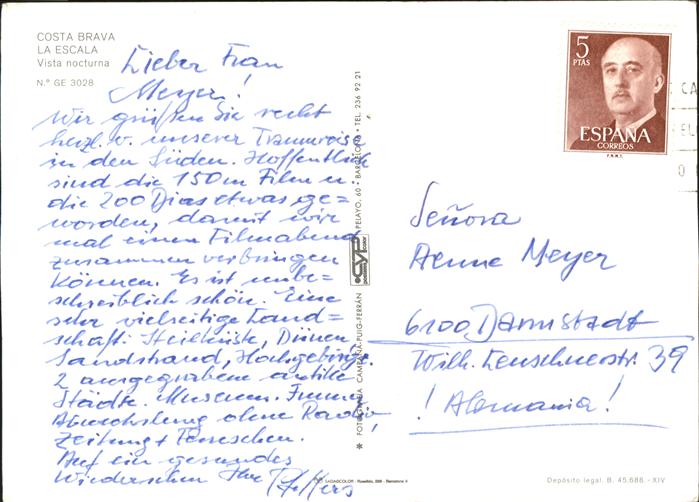 COSTA BRAVA
LA ESCALA
Vista nocturna
N.º GE 3028
Lieber Frau
Meyer!
Wir grüßen Sie recht
herzl. v. unserer Traumreise
in den Süden. Hoffentlich
sind die 150m Film u.
die 200 Dias etwas ge=
worden, damit wir
mal einen Filmabend
zusammen verbringen
können. Es ist unbe=
schreiblich schön. Eine
sehr vielseitige Land=
schaft: Steilküste, Dünen
Sandstrand, Hochgebirge.
2 ausgegrabene antike
Städte. Museum. Immer
Abwechslung ohne Radio,
Zeitung + Fernsehen.
Auf ein gesundes
Wiedersehen Ihre
FOTOGRAFIA CAMPAÑA-PUIG-FERRÁN
CYP
PELAYO, 60 • BARCELONA • TEL. 236 92 21
5
PTAS
ESPAÑA
CORREOS
F.N.M.T.
Señora
Aenne Meyer
6100 Darmstadt
Wilh. Leuschnerstr. 39
! Alemania!
Depósito legal. B. 45.688 - XIV